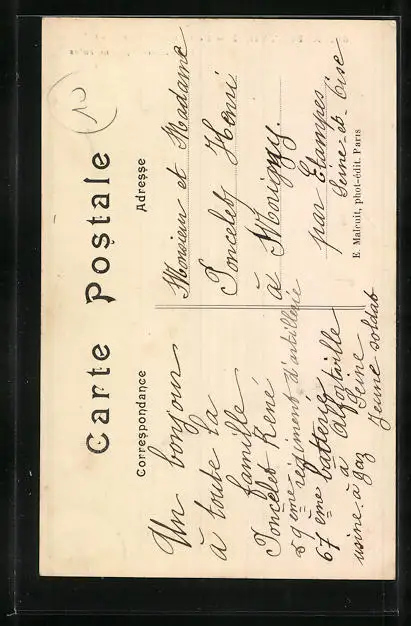 Carte Postale
10
Correspondance
Adresse
Un bonjour
à toute la
famille
Poncelet René
59ème régiment d'artillerie
67ème batterie
à Alfortville
Seine
usine à gaz
Jeune soldat
Monsieur et Madame
Poncelet Henri
à Morigny.
par Etampes
Seine-et-Oise
E. Malcuit, phot-édit. Paris